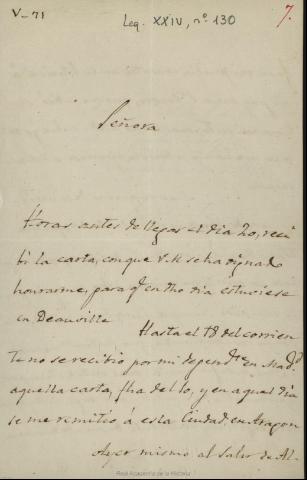 V-71
Leg. XXIV, nº 130
7.
Señora
Horas antes de llegar el dia 20, reci
bi la carta, con que V.M se ha dignado
honrarme, para q. en dho dia estuviese
en Deauville
Hasta el 18 del corrien
te no se recibio por mi depend.te en Mad.d
aquella carta, fha del 10, y en aquel dia
se me remitio á esta Ciudad, en Aragon
Ayer mismo al salir de Al-
Real Academia de la Historia